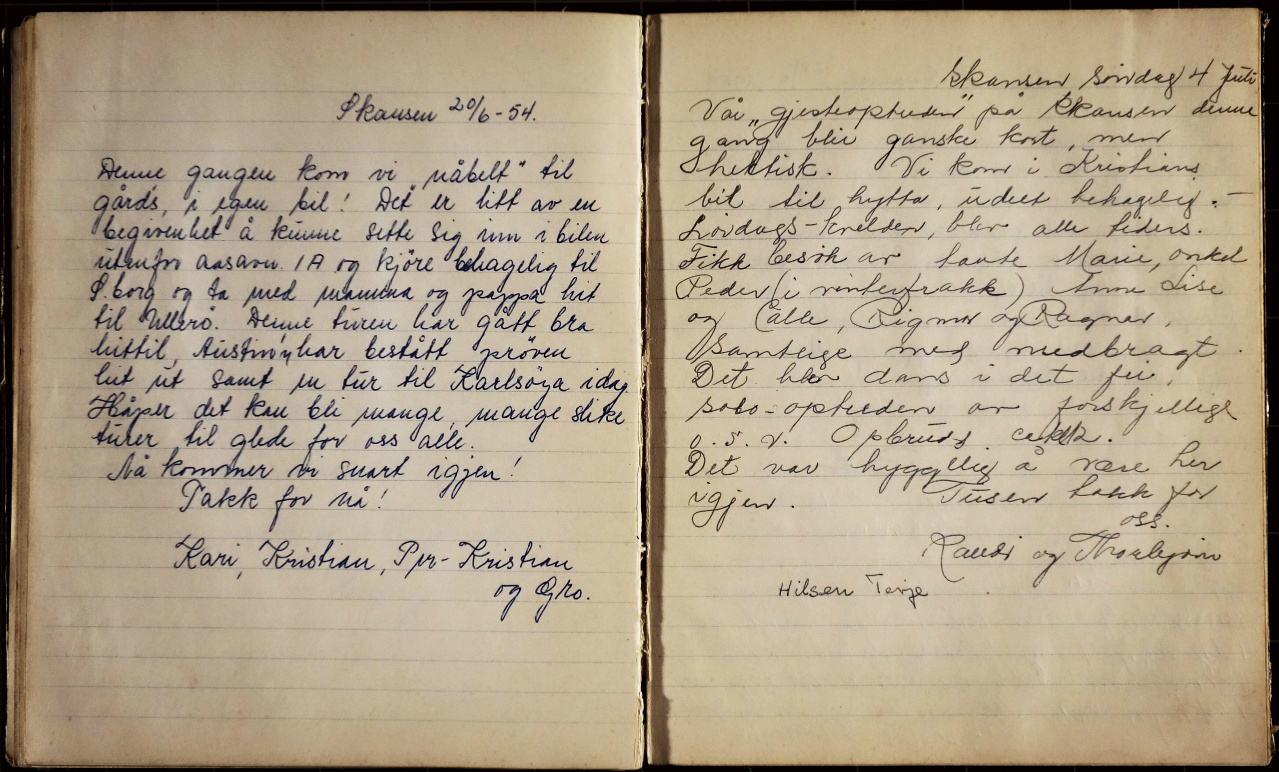 Skansen 20/6-54.
Denne gangen kom vi „nåbelt" til
gårds, i egen bil! Det er litt av en
begivenhet å kunne sette sig inn i bilen
utenfor aasavn. 1A og kjöre behagelig til
S.borg og ta med mamma og pappa hit
til Ullerö. Denne turen har gått bra
hittil, Austin'n har bestått pröven
hit ut samt en tur til Karlsöya idag
Håper det kan bli mange, mange slike
turer til glede for oss alle.
Nå kommer vi snart igjen!
Takk for nå!
Kari, Kristian, Per-Kristian
og Gro.
Skansen söndag 4 Juli
Vår „gjesteoptreden" på Skansen denne
gang blir ganske kort, men
hektisk. Vi kom i Kristians
bil til hytta, udelt behagelig. -
Lördags-kvelden, blev alle tiders.
Fikk besök av tante Marie, onkel
Peder (i vinterfrakk) Anne Lise
og Calle, Rigmor og Ragnar,
samtlige med medbragt.
Det blev dans i det fri,
solo-optreden av forskjellige
o.s.v. Opbrudd
Det var hyggelig å være her
igjen. Tusen takk for
oss.
Randi og Thorbjörn
Hilsen Terje